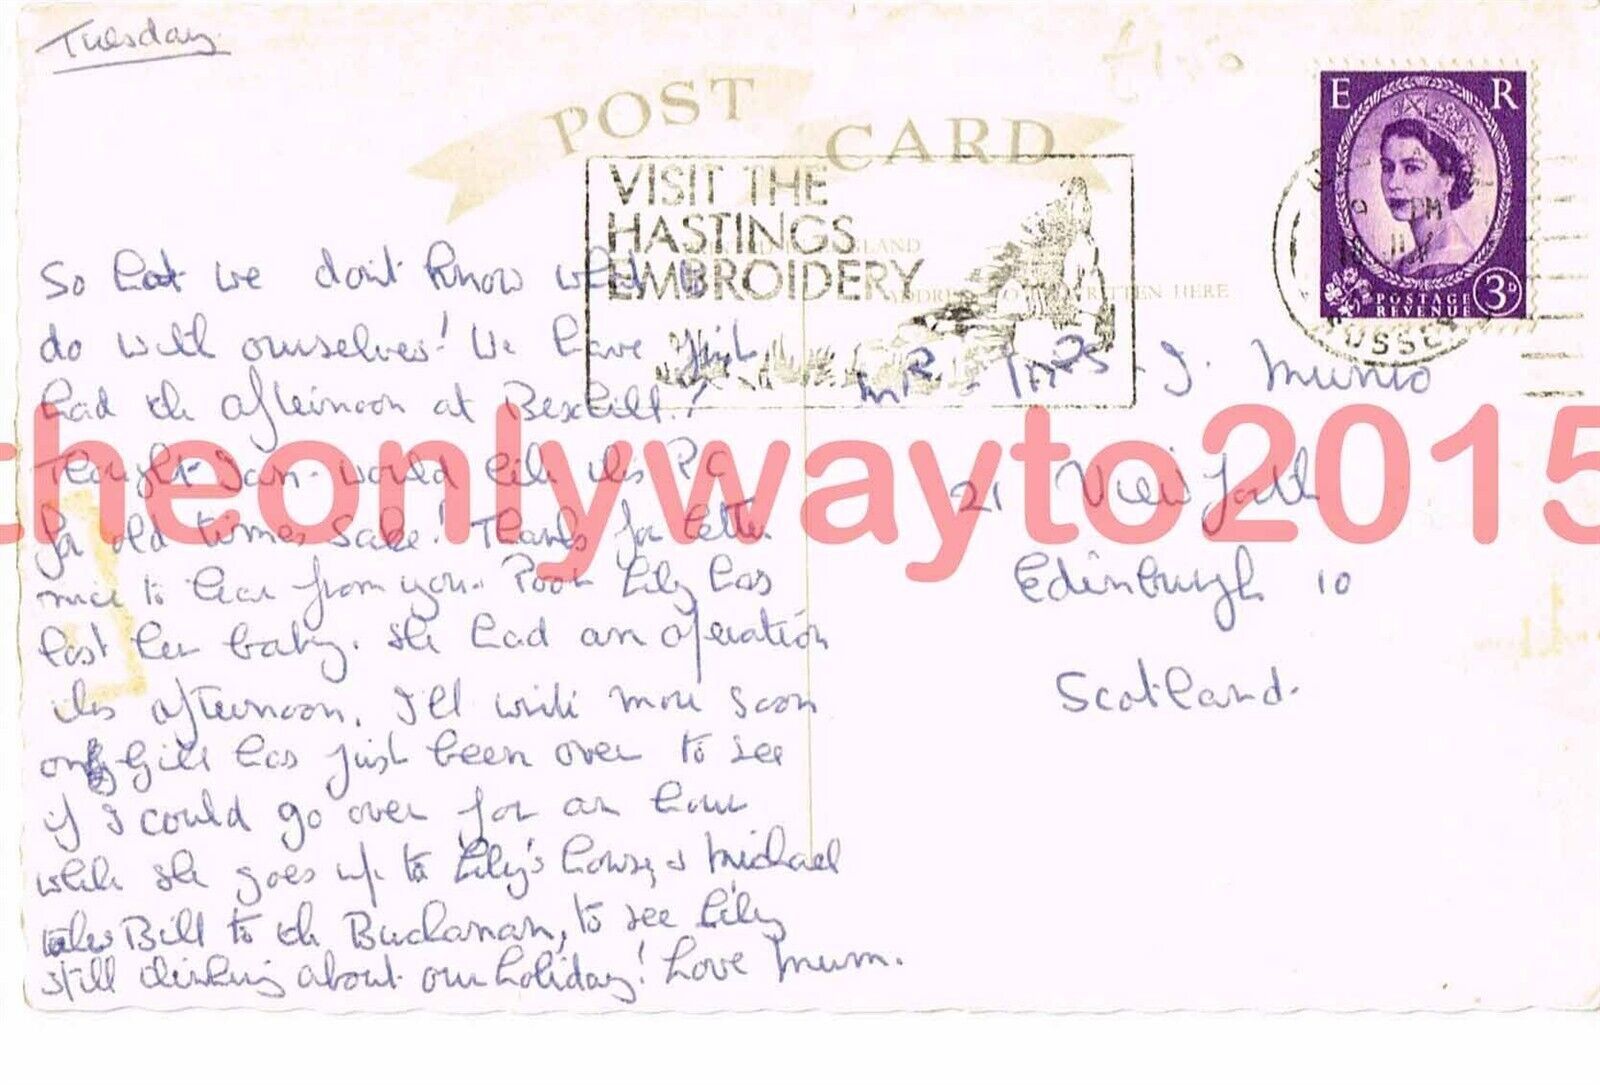 Tuesday.
POST CARD
VISIT THE
HASTINGS
EMBROIDERY
E R
POSTAGE
REVENUE
3D
PM
USSEX
LAND
ADDRESS TO BE WRITTEN HERE
So hot we don't know what to
do with ourselves! We have just
had the afternoon at Bexhill!
Thought Ian would like this P.C.
for old times sake! Thanks for letter
nice to hear from you. Poor Lily has
lost her baby. She had an operation
this afternoon. I'll write more soon
only Gill has just been over to see
if I could go over for an hour
while she goes up to Lily's house, & Michael
takes Bill to the Buchanan, to see Lily
still thinking about our holiday! Love Mum.
MR - MRS - I. Munro
21 Viewforth
Edinburgh 10
Scotland.
theonlywayto2015